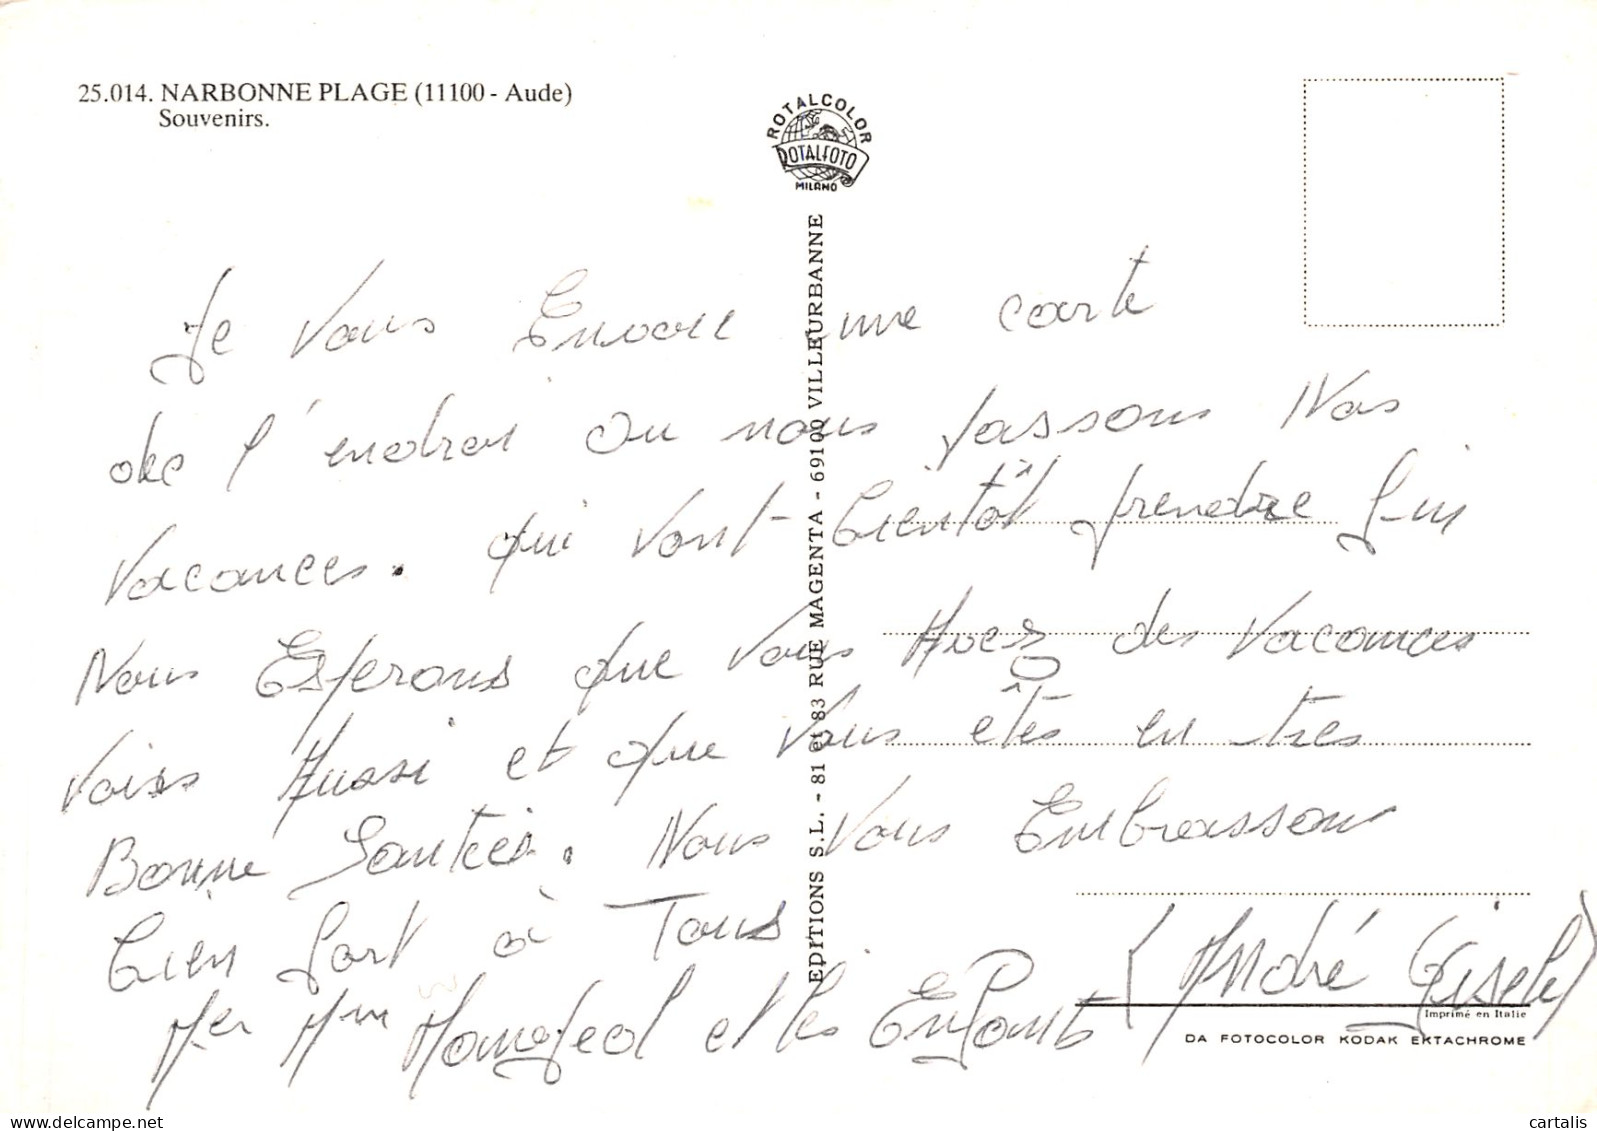 25.014. NARBONNE PLAGE (11100 - Aude)
Souvenirs.
ROTALCOLOR
ROTALFOTO
MILANO
EDITIONS S.L. - 81 et 83 RUE MAGENTA - 69100 VILLEURBANNE
Je Vous Envoie une carte
de l'endroi Ou nous passons Nos
Vacances. qui vont bientôt prendre fin
Nous Esperons que Vous Avez des Vacances
Aussi et que Vous êtes en tres
Bonne Santée. Nous Vous Embrassons
bien fort à Tous
Mer Mm et les Enfants (André Gisele)
Imprimé en Italie
DA FOTOCOLOR KODAK EKTACHROME
cartalis